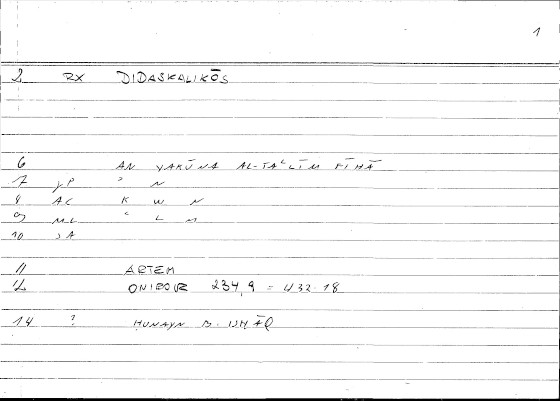 1
2 RX DIDASKALIKŌS
6 AN YAKŪNA AL-TAʿLĪM FĪHĀ
7 ʾ N
8 AC K W N
9 ML ʿ L M
10 SA
11 ARTEM
12 ONIROCR 234,9 = 432.18
14 ? HUNAYN B. ISHĀQ